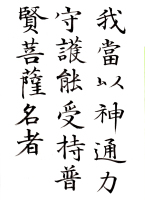 我當以神通力
守護能受持普
賢菩薩名者